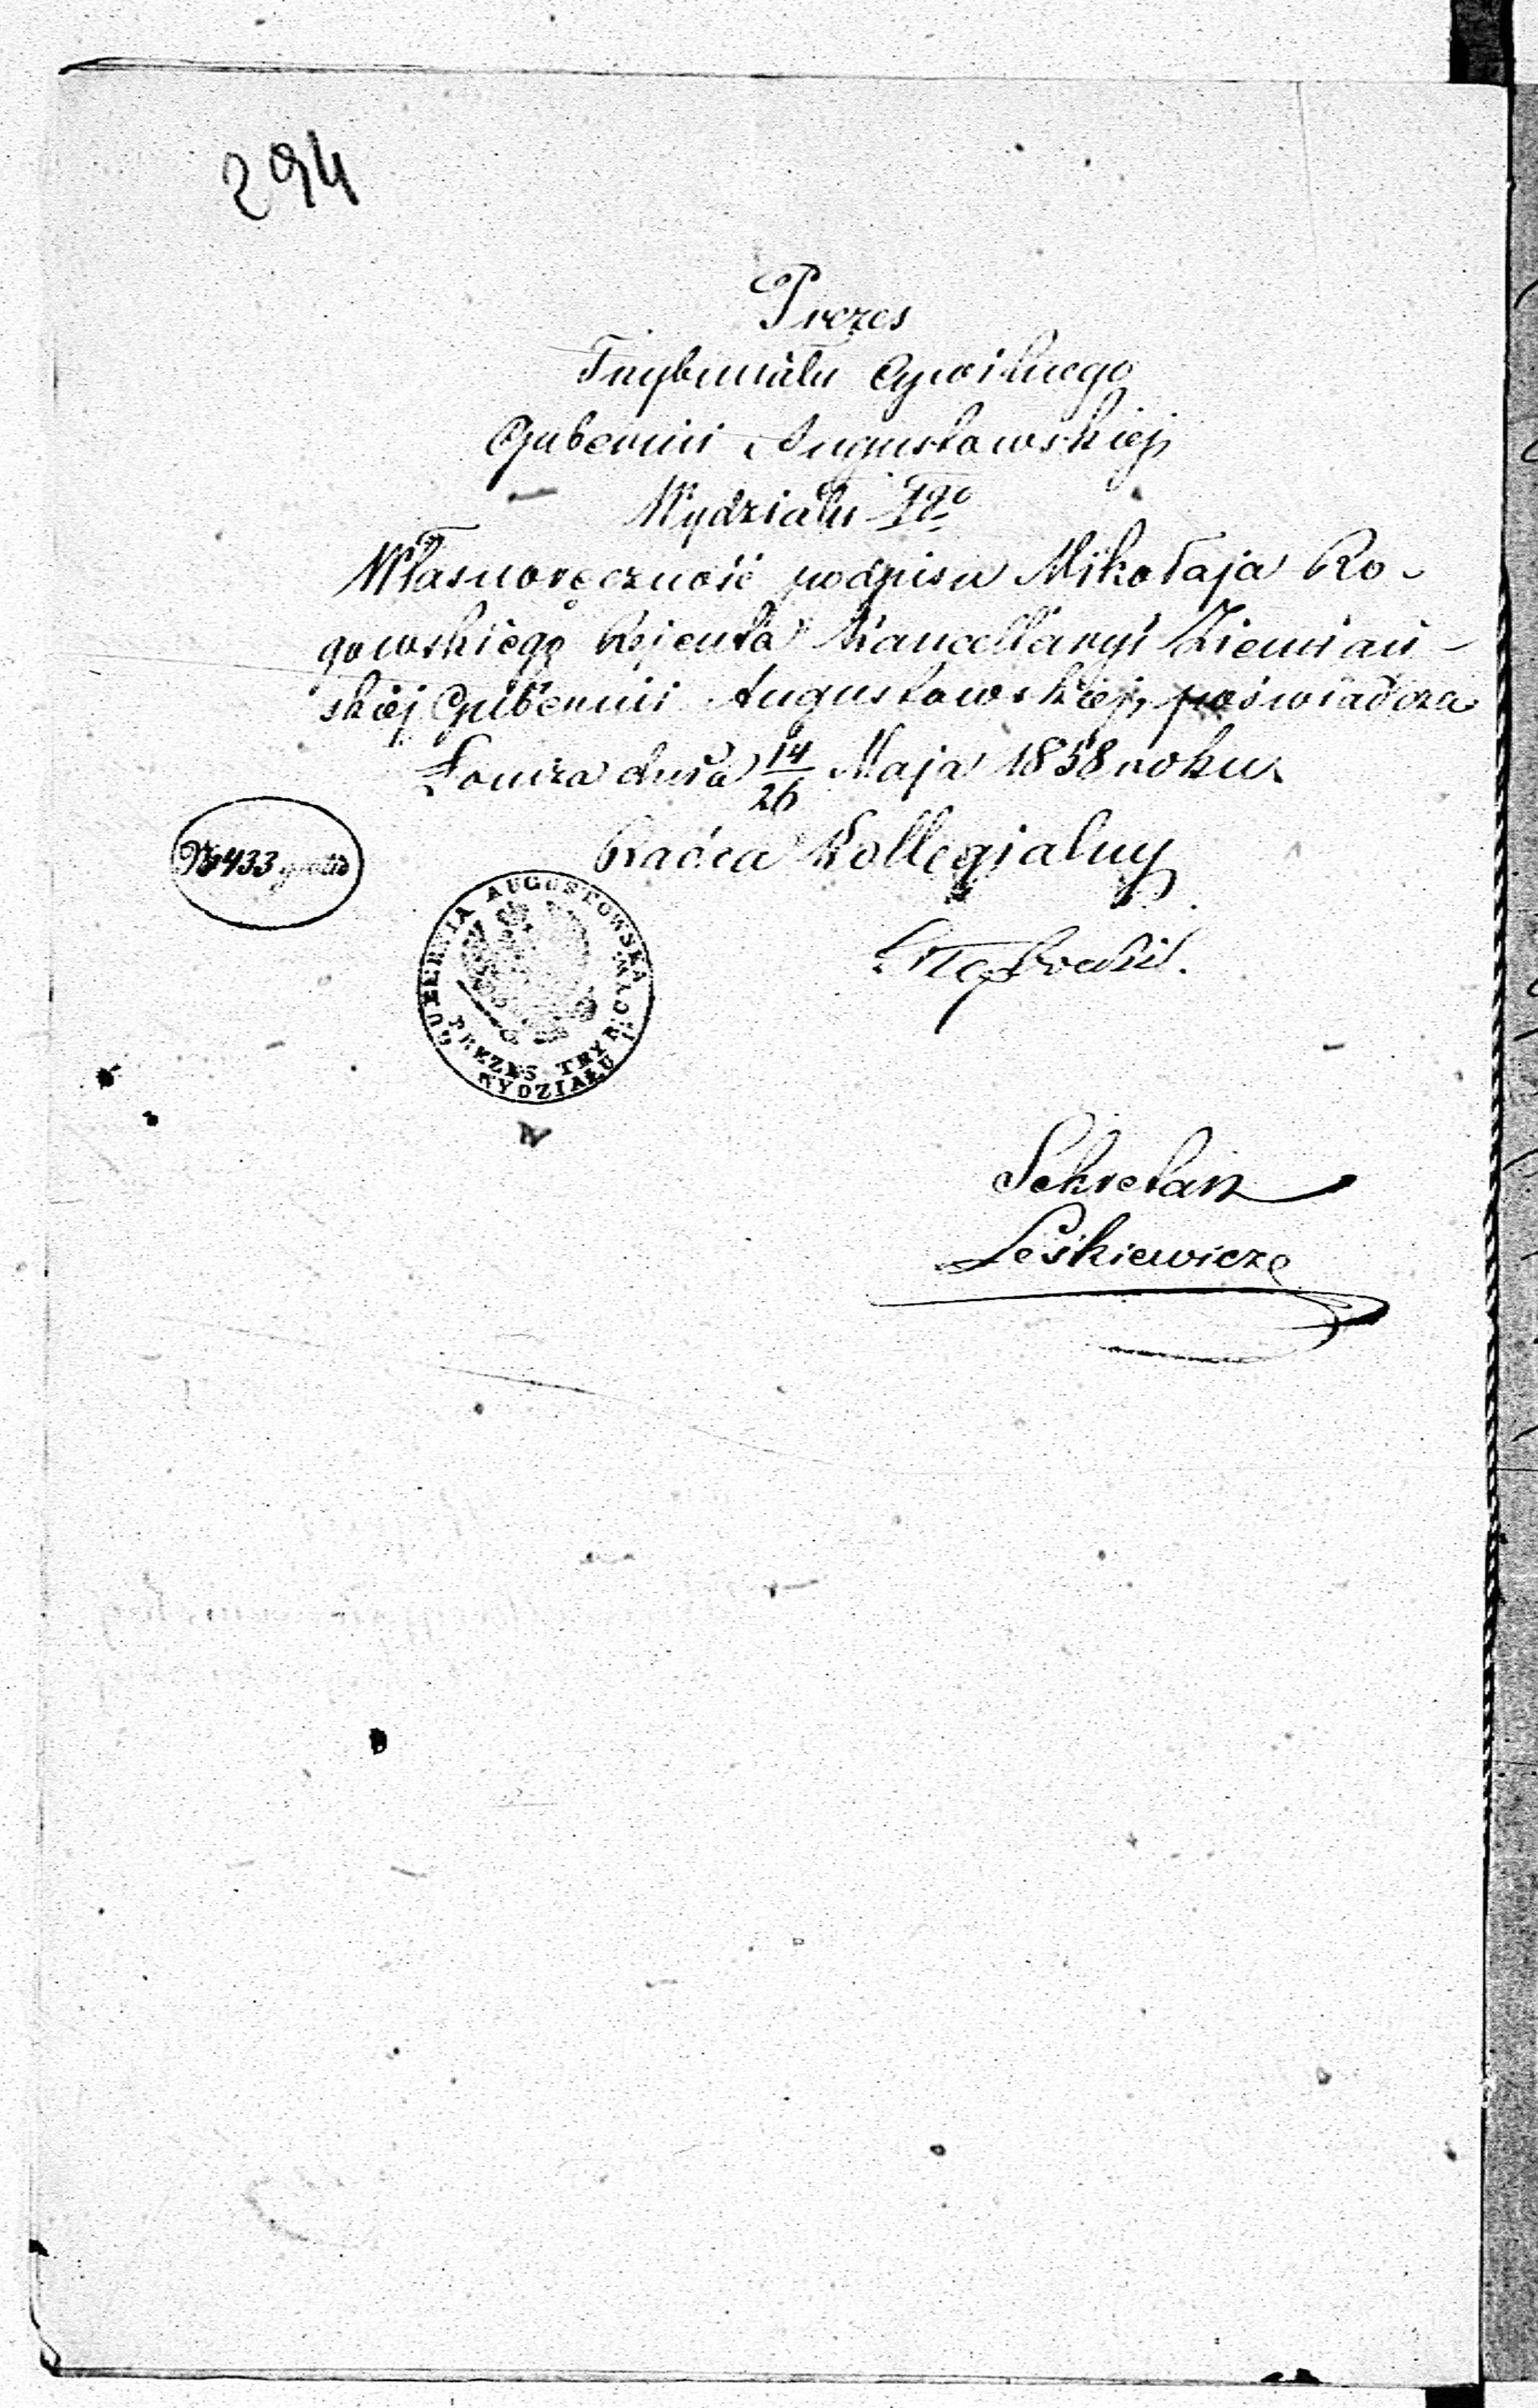 294
Prezes
Trybunału Cywilnego
Gubernii Augustowskiej
Wydziału Igo
Własnoręczność podpisu Mikołaja Ro-
gowskiego Rejenta Kancellaryi Ziemiań-
skiej Gubernii Augustowskiej, poświadcza
Łomża dnia 14/26 Maja 1858 roku.
Radca Kollegialny
№ 433 gratis
GUBERNIA AUGUSTOWSKA
PREZES TRYB: CYW:
WYDZIAŁU I
Sekretarz
Leśkiewicz